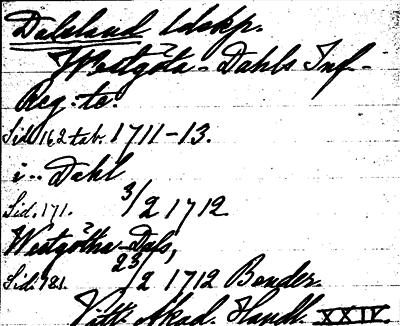 Dalsland ldskp.
Westgöta-Dahls Inf-
Reg:te.
Sid. 162 tab. 1711-13.
i.. Dahl
Sid. 171. 3/2 1712
Westgötha-Dals,
23/2 1712 Bender.
Sid. 781.
Vitt. Akad. Handl. XXIV.